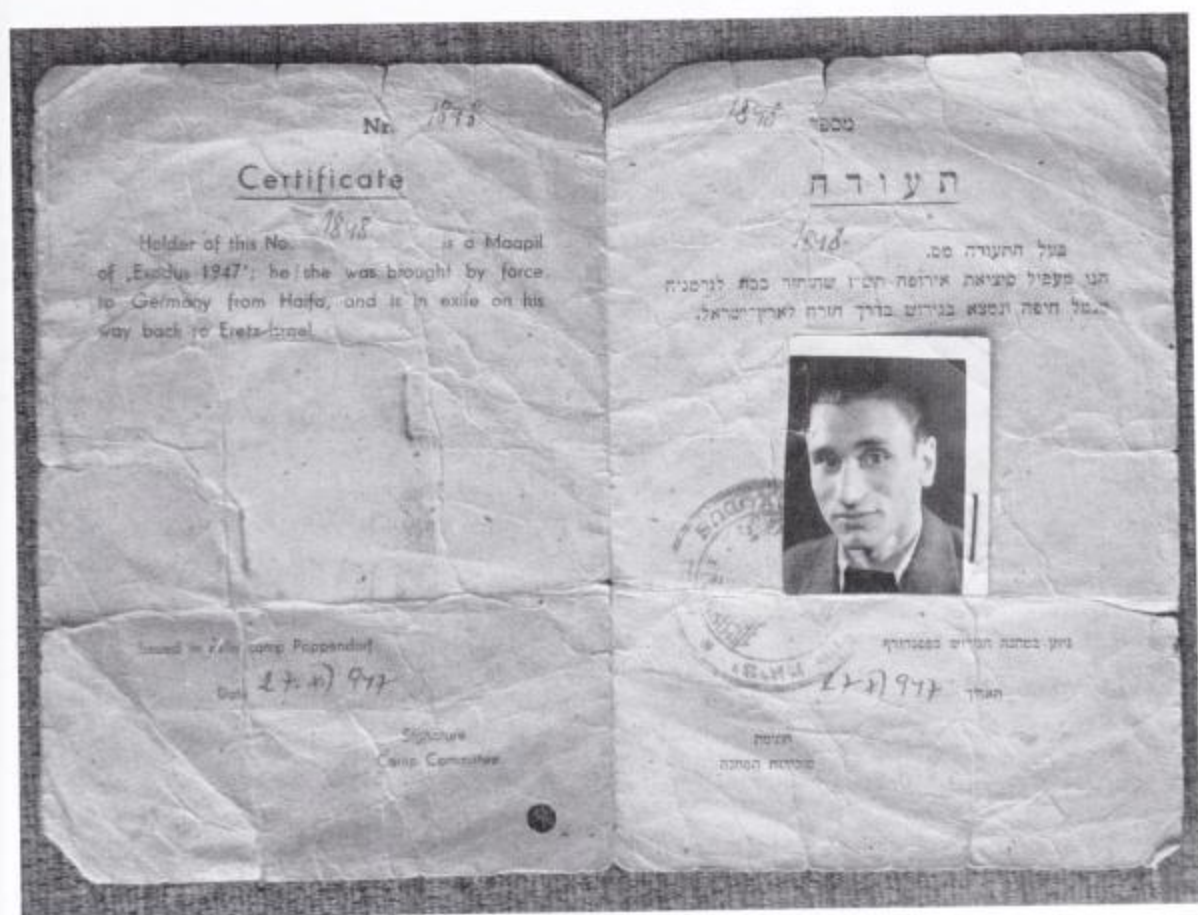 Nr. 1848
Certificate
Holder of this No. 1848 is a Maapil
of „Exodus 1947"; he/she was brought by force
to Germany from Haifa, and is in exile on his
way back to Eretz-Israel.
Issued in exile camp Poppendorf
Date 27. 947
Signature
Camp Committee
מספר 1848
תעודה
בעל התעודה מס. 1848
הנו מעפיל מיציאת אירופה תש״ז שהוחזר בכח לגרמניה
מנמל חיפה ונמצא בגירוש בדרך חזרה לארץ־ישראל.
ניתן במחנה הגירוש בפפנדורף
תאריך 27 947
חתימת
מזכירות המחנה